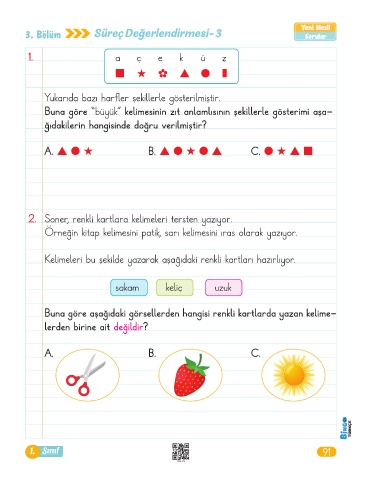 3. Bölüm Süreç Değerlendirmesi-3
Yeni Nesil
Sorular
1.
a ç e k ü z
Yukarıda bazı harfler şekillerle gösterilmiştir.
Buna göre “büyük” kelimesinin zıt anlamlısının şekillerle gösterimi aşa-
ğıdakilerin hangisinde doğru verilmiştir?
A. B. C.
2. Soner, renkli kartlara kelimeleri tersten yazıyor.
Örneğin kitap kelimesini patik, sarı kelimesini ıras olarak yazıyor.
Kelimeleri bu şekilde yazarak aşağıdaki renkli kartları hazırlıyor.
sakam keliç uzuk
Buna göre aşağıdaki görsellerden hangisi renkli kartlarda yazan kelime-
lerden birine ait değildir?
A. B. C.
1. Sınıf
91